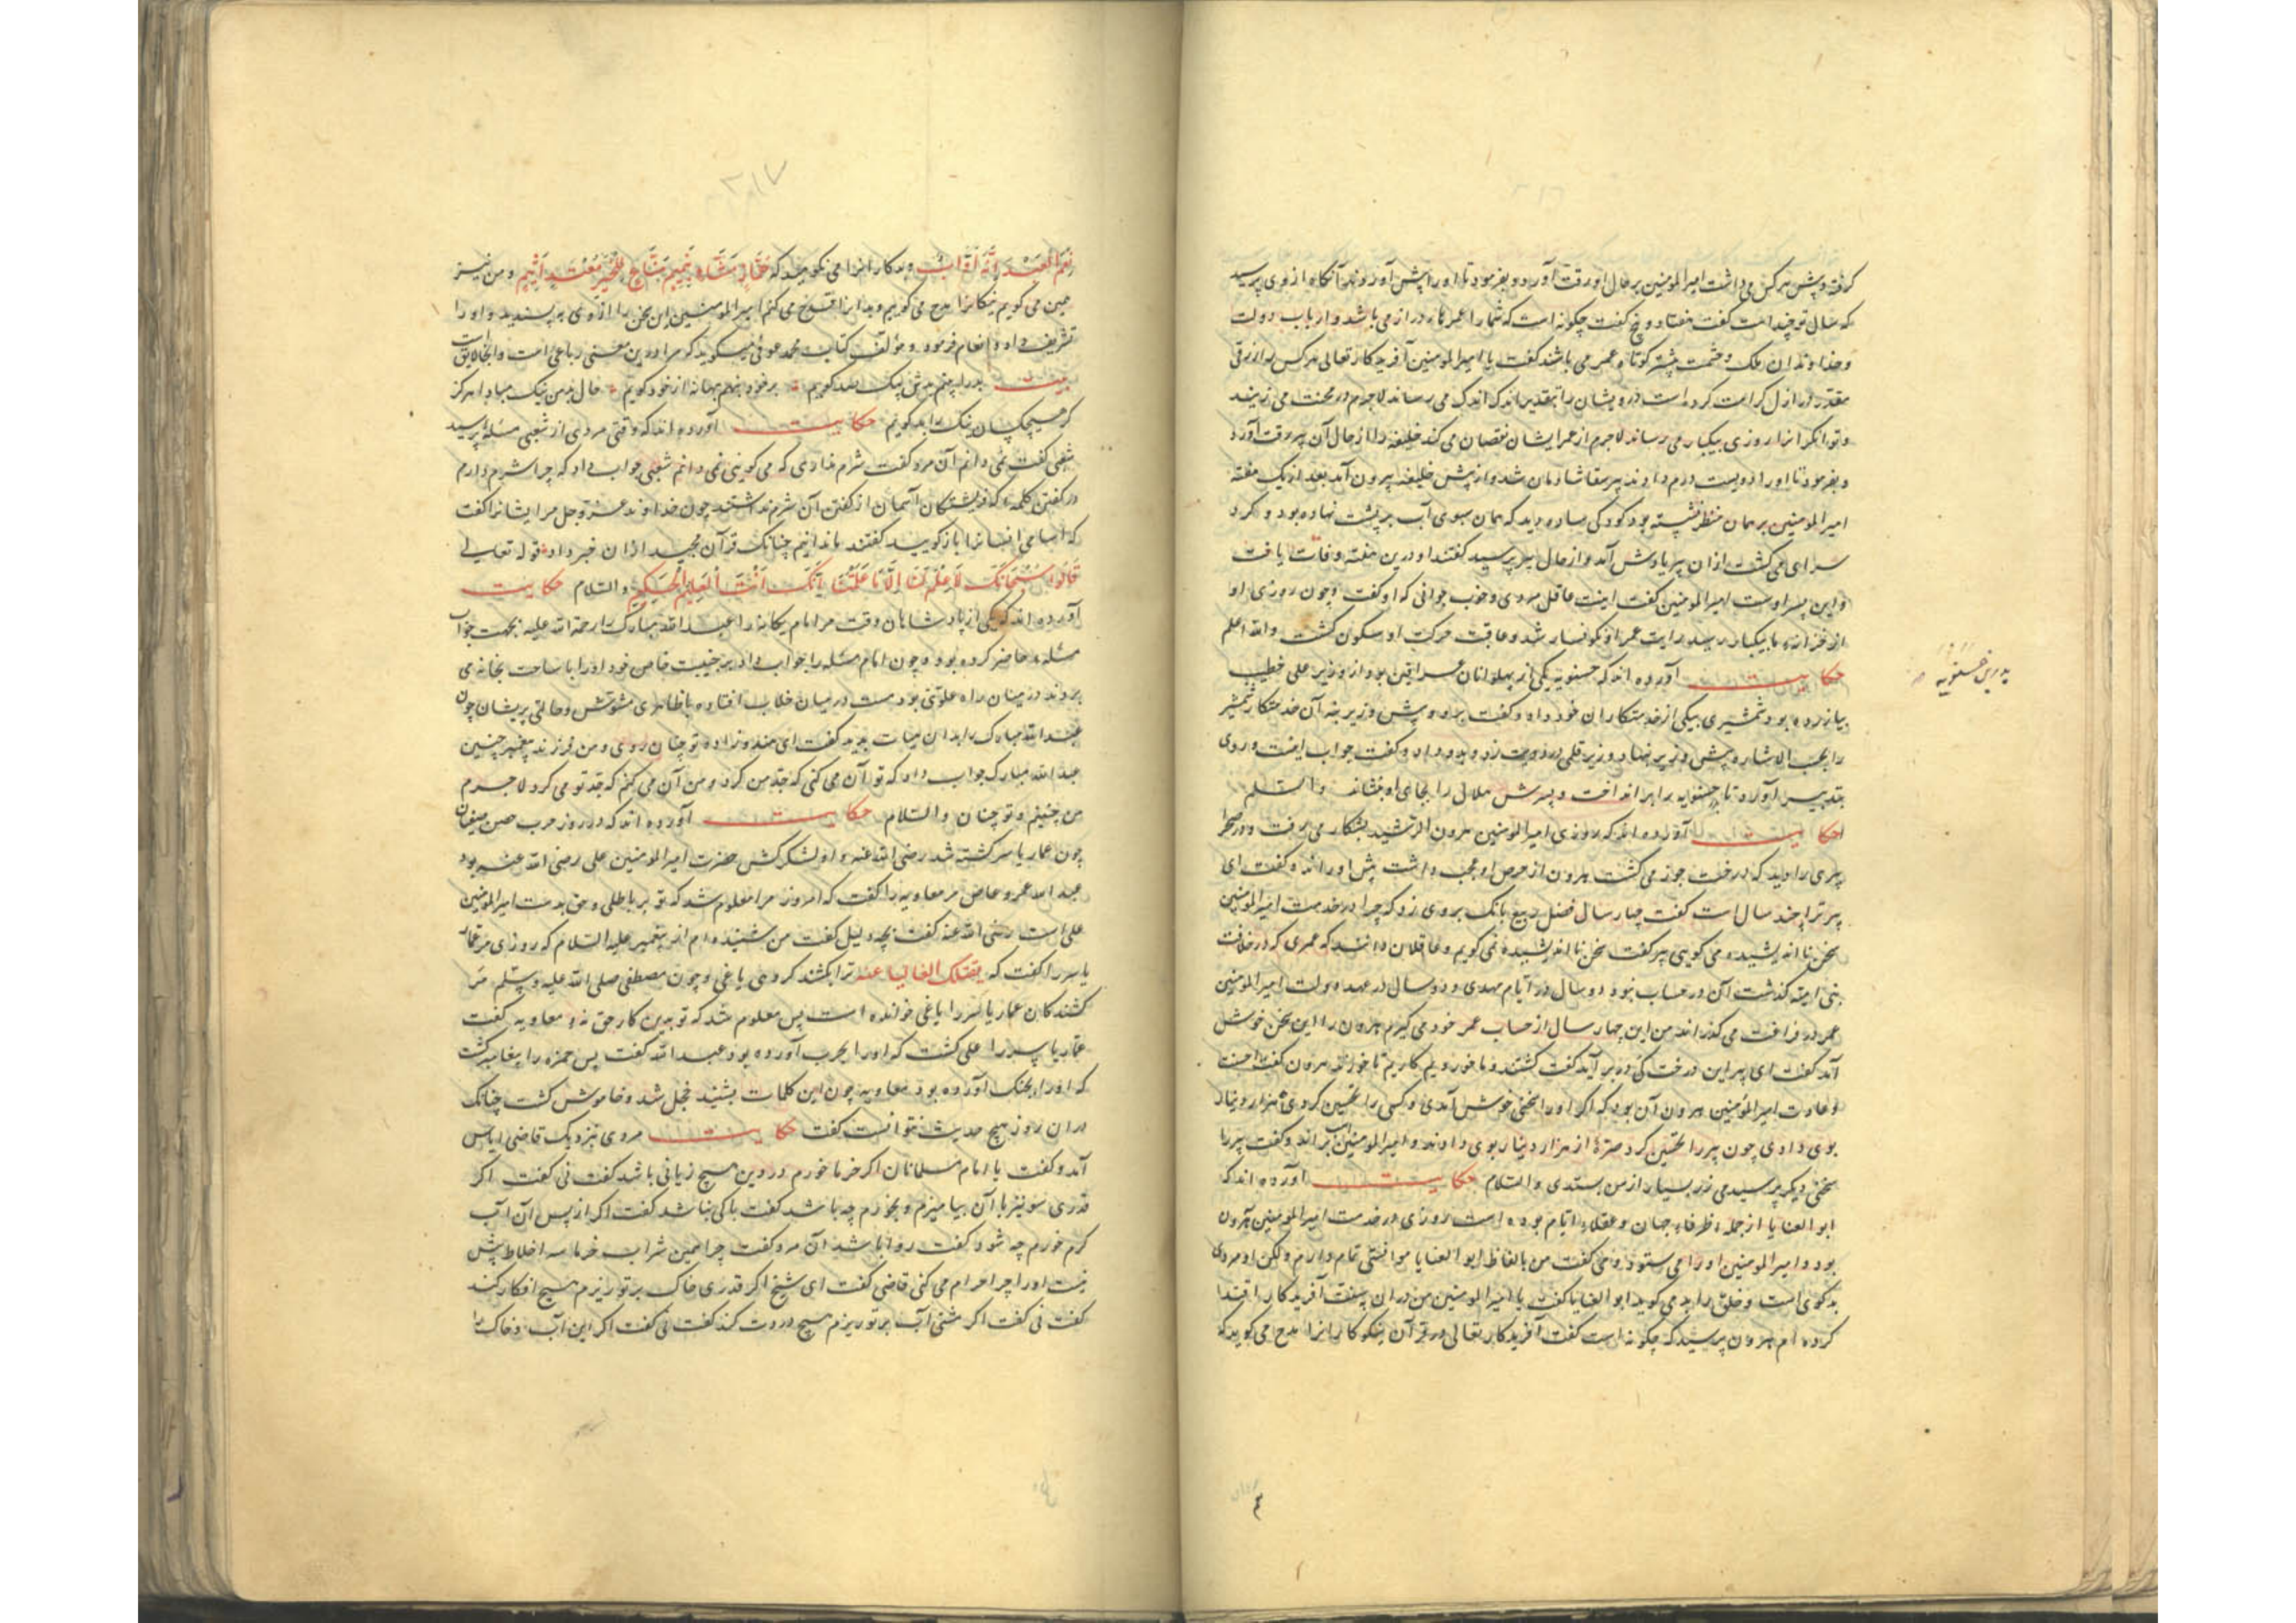 کرفته و پیش هرکس می داشت امیرالمومنین بر حال او رقت آورد و بفرمود تا او را پیش آوردند آنکاه از وی پرسید
که سال تو چند است کفت هفتاد و پنج کفت چکونه است که شما را عمرها دراز می باشد و ارباب دولت
و خداوندان ملک و حشمت بیشتر کوتاه عمر می باشند کفت یا امیرالمومنین آفریدکار تعالی هرکس را رزقی
مقدر در ازل کرامت کرده است درویشان را بتقدیر اندک اندک می رساند لاجرم در محنت می زیند
و توانکرانرا روزی بیکبار می رساند لاجرم از عمر ایشان نقصان می کند خلیفه را از حال آن پیر رقت آورد
و بفرمود تا او را دویست درم دادند پیر سقا شادمان شد و از پیش خلیفه بیرون آمد بعد از یک هفته
امیرالمومنین بر همان منظر نشسته بود کودکی ساده دید که همان سبوی آب بر پشت نهاده بود و کرد
سرای می کشت ازان پیر یادش آمد و از حال پیر پرسید کفتند او درین هفته وفات یافت
و این پسر اوست امیرالمومنین کفت اینت عاقل مردی و خوب جوابی که او کفت و چون روزی او
از خزانه ما بیکبار رسید رایت عمر او نکونسار شد و عاقبت حرکت او سکون کشت والله اعلم
حکایت آورده اند که حسنویه یکی از پهلوانان عراقین بود از وزیر علی خطیب
بیازرده بود شمشیری بیکی از خدمتکاران خود داد و کفت برو و پیش وزیر بنه آن خدمتکار شمشیر
را بحسب الاشاره پیش وزیر نهاد وزیر قلمی در دوات زد و بدو داد و کفت جواب اینست و روی
بتدبیر آورد تا حسنویه را برانداخت و پسرش هلال را بجای او بنشاند والسلم
حکایت آورده اند که روزی امیرالمومنین هرون الرشید بشکار می رفت و در صحرا
پیری را دید که درخت جوز می کشت هرون از حرص او عجب داشت پیش او راند و کفت ای
پیر ترا چند سال است کفت چهار سال فضل ربیع بانک بر وی زد که چرا در خدمت امیرالمومنین
سخن نااندیشیده می کویی پیر کفت سخن نااندیشیده نمی کویم و عاقلان دانند که عمری که در خلافت
بنی امیه کذشت آن در حساب نبود دو سال در ایام مهدی و دو سال در عهد دولت امیرالمومنین
عمر در فراغت می کذراند من این چهار سال از حساب عمر خود می کیرم هرون را این سخن خوش
آمد کفت ای پیر این درخت کی در بر آید کفت کشتند و ما خوردیم کاریم تا خورند هرون کفت احسنت
و عادت امیرالمومنین هرون آن بود که اکر او را سخنی خوش آمدی و کسی را تحسین کردی هزار دینار
بوی دادی چون پیر را تحسین کرد صره از هزار دینار بوی دادند و امیرالمومنین اسب براند و کفت پیر را
سخنی دیکر پرسیدمی زر بسیار از من بستدی والسلام حکایت آورده اند که
ابوالعنایا از جمله ظرفاء جهان و عقلاء ایام بوده است روزی در خدمت امیرالمومنین هرون
بود و امیرالمومنین او را می ستود و می کفت من بالفاظ ابوالعنایا موافقتی تمام دارم ولکن او مردی
بدکوی است و خلق را بد می کوید ابوالعنایا کفت یا امیرالمومنین من دران بصفت آفریدکار اقتدا
کرده ام هرون پرسید که چکونه است کفت آفریدکار تعالی در قرآن نیکوکارانرا مدح می کوید که
پدرین حسنویه
۲۱۷
نِعْمَ الْعَبْدُ اِنَّهُ اَوَّابٌ و بدکارانرا می نکوهد که هَمَّازٍ مَشَّاءٍ بِنَمِیمٍ مَنَّاعٍ لِلْخَیْرِ مُعْتَدٍ اَثِیمٍ و من نیز
همین می کویم نیکانرا مدح می کویم و بدانرا قدح می کنم امیرالمومنین این سخن را از وی بپسندید و او را
تشریف داد و انعام فرمود و مؤلف کتاب محمد عوفی میکوید که مرا درین معنی رباعی است و اینجا لایق است
بیت بد را بینم به نیکی بد کویم برخود بنهم بهانه از خود کویم حال من نیک مبادا هرکز
کر هیچ کسان نیک را بد کویم حکایت آورده اند که وقتی مردی از شعبی مسئله پرسید
شعبی کفت نمی دانم آن مرد کفت شرم نداری که می کویی نمی دانم شعبی جواب داد که چرا شرم دارم
در کفتن کلمه که فریشتکان آسمان از کفتن آن شرم نداشتند چون خداوند عز و جل مر ایشانرا کفت
که اسامی اشیا را بازکویید کفتند ما ندانیم چنانک قرآن مجید ازان خبر داد قوله تعالی
قَالُوا سُبْحَانَکَ لَا عِلْمَ لَنَا اِلَّا مَا عَلَّمْتَنَا اِنَّکَ اَنْتَ الْعَلِیمُ الْحَکِیمُ والسلام حکایت
آورده اند که یکی از پادشاهان وقت مر امام یکانه را عبدالله مبارک را رحمة الله علیه بجهت جواب
مسئله حاضر کرده بود و چون امام مسئله را جواب داد بر جنیبت خاص خود او را با ساحت بخانه می
بردند در میان راه علویی بود مست در میان خلاب افتاده با ظاهری مشوش و حالتی پریشان چون
عبدالله مبارک را بدان هیات بدید کفت ای هندوزاده تو چنان روی و من فرزند پیغمبر چنین
عبدالله مبارک جواب داد که تو آن می کنی که جد من کرد و من آن می کنم که جد تو می کرد لاجرم
من چنینم و تو چنان والسلام حکایت آورده اند که در روز حرب صفین
چون عمار یاسر کشته شد رضی الله عنه و او لشکرکش حضرت امیرالمومنین علی رضی الله عنه بود
عبدالله عمرو عاص مر معاویه را کفت که امروز مرا معلوم شد که تو بر باطلی و حق بدست امیرالمومنین
علی است رضی الله عنه کفت بچه دلیل کفت من شنیده ام از پیغمبر علیه السلام که روزی مر عمار
یاسر را کفت که یقتلک الفئة الباغیه ترا بکشند کروهی یاغی و چون مصطفی صلی الله علیه و سلم مر
کشندکان عمار یاسر را یاغی خوانده است پس معلوم شد که تو بدین کار حق نه معاویه کفت
عمار یاسر را علی کشت که او را بحرب آورده بود عبدالله کفت پس حمزه را پیغامبر کشت
که او را بجنک آورده بود معاویه چون این کلمات بشنید خجل شد و خاموش کشت چنانک
دران روز هیچ حدیث نتوانست کفت حکایت مردی نزدیک قاضی ایاس
آمد و کفت یا امام مسلمانان اکر خرما خورم در دین هیچ زیانی باشد کفت نی کفت اکر
قدری شونیز با آن بیامیزم و بخورم چه باشد کفت باکی نباشد کفت اکر از پس آن آب
کرم خورم چه شود کفت روا باشد آن مرد کفت چرا همین شراب خرما سه اخلاط بیش
نیست او را چرا حرام می کنی قاضی کفت ای شیخ اکر قدری خاک بر تو ریزم هیچ افکار کند
کفت نی کفت اکر مشتی آب بر تو ریزم هیچ دردت کند کفت نی کفت اکر این آب و خاک را